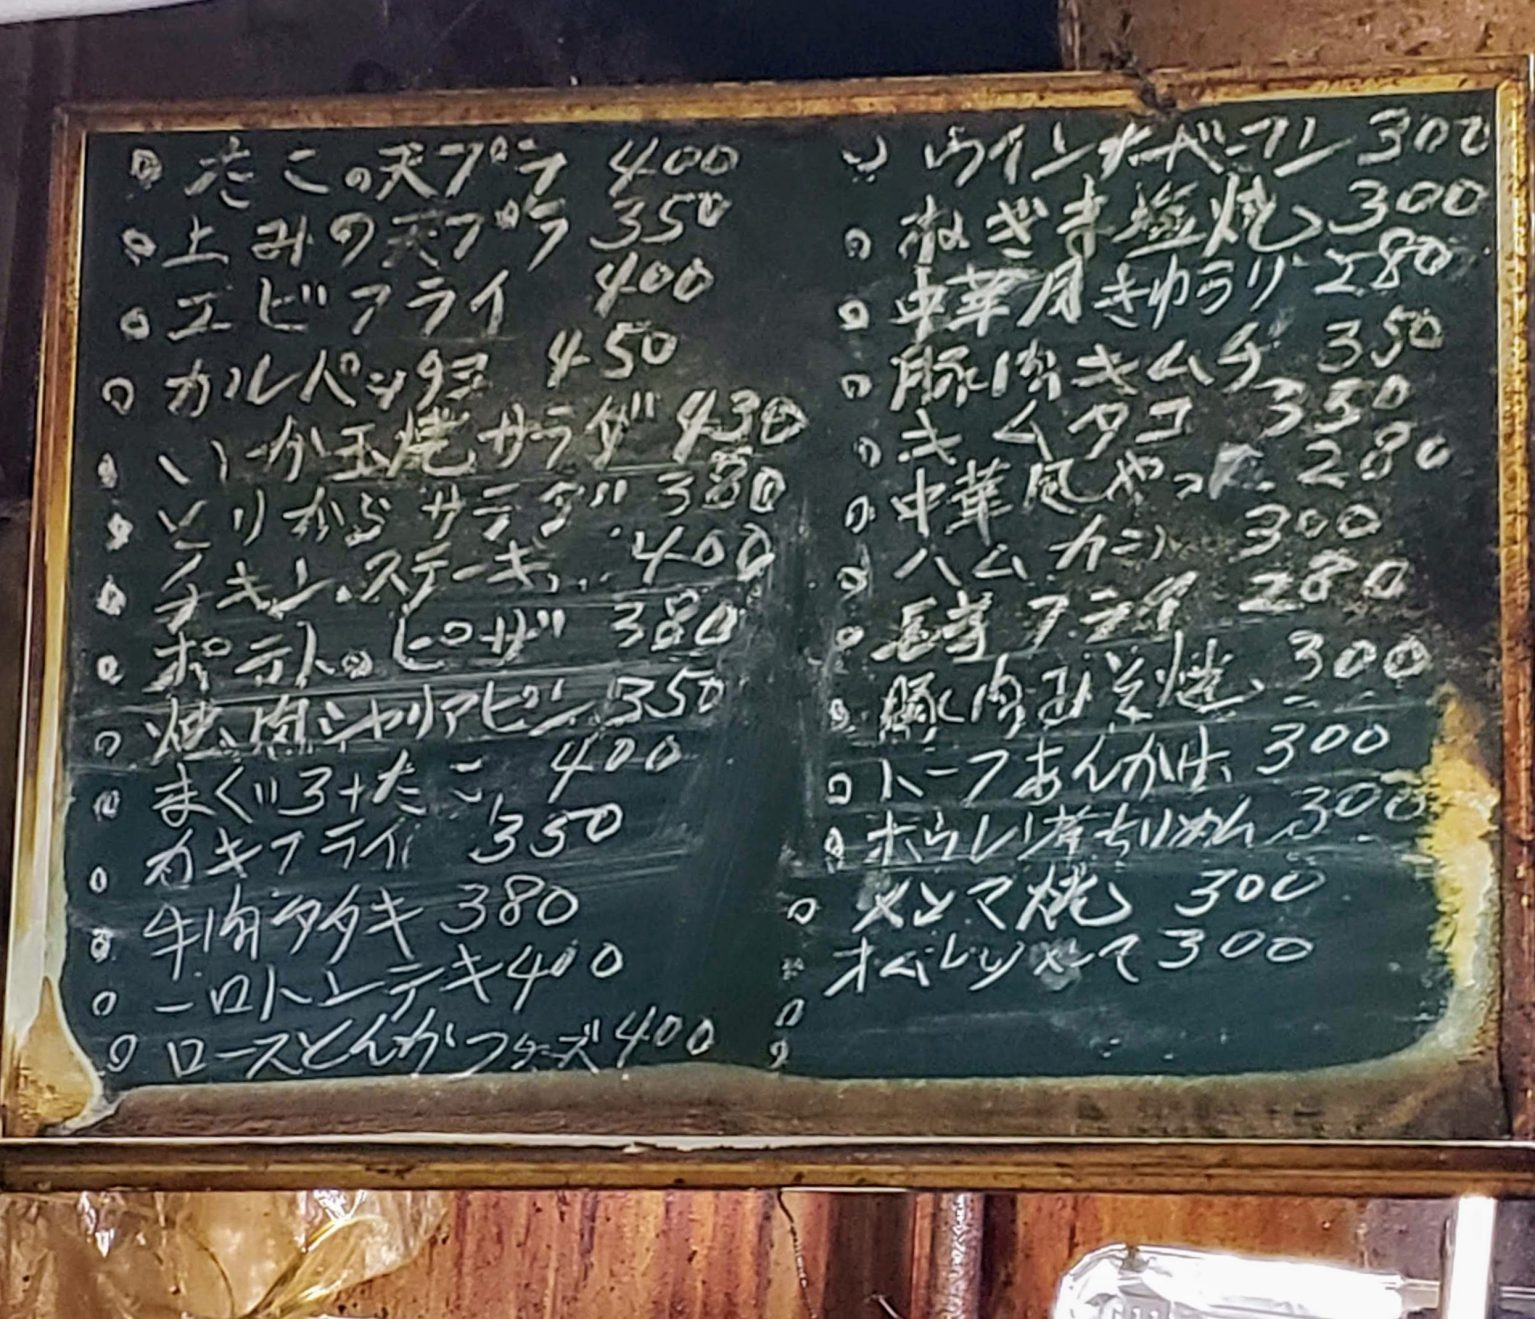 たこの天プラ 400
上みの天プラ 350
エビフライ 400
カルパッチョ 450
いか玉焼サラダ 430
とりからサラダ 380
チキンステーキ 400
ポテトピザ 380
焼肉シャリアピン 350
まぐろ+たこ 400
カキフライ 350
牛肉タタキ 380
一口トンテキ 400
ロースとんかつチーズ 400
ウインナーベーコン 300
ねぎま塩焼 300
中華風きゅうり 280
豚肉キムチ 350
キムタコ 350
中華風やっこ 280
ハムカツ 300
長芋フライ 280
豚肉みそ焼 300
トーフあんかけ 300
ホウレン草ちりめん 300
メンマ焼 300
オムレツ 300